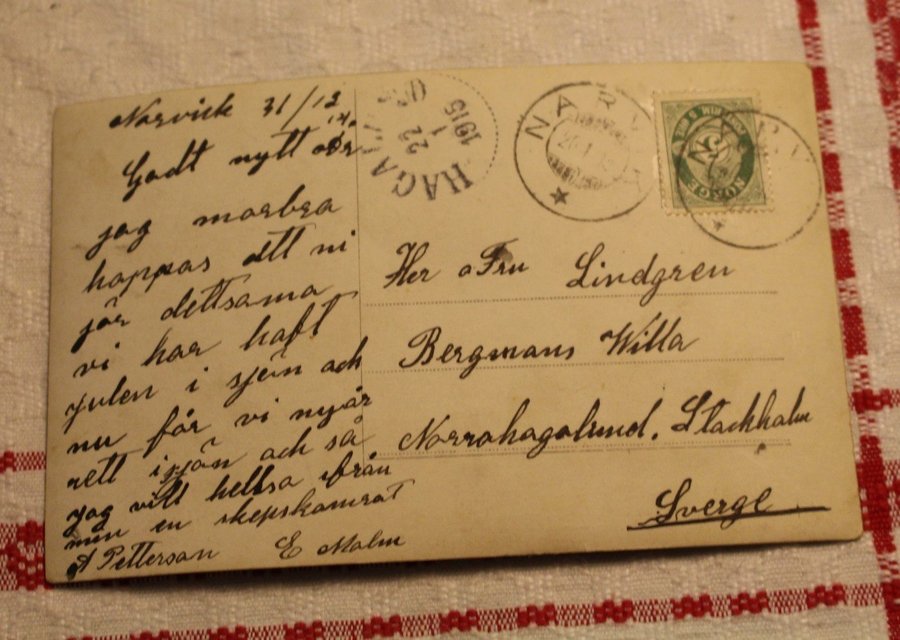 Norvick 31/12
14.
Godt nytt oår
jag marbra
happas att ni
jör dettsama
vi har haft
julen i sjön och
nu får vi nyår
nett isjön och så
jag vill hellsa ifrån
min en skepskamrat
A Petterson E Malm
HAGA
22
1
1915
NARV
NARV
NORGE
5
Her o Fru Lindgren
Bergmans Willa
Norrahagalund. Stackhalm
Sverge